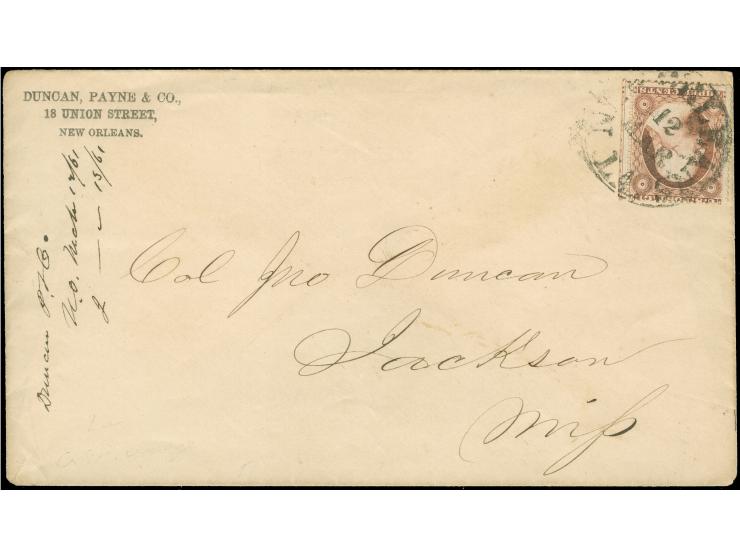 DUNCAN, PAYNE & CO.,
18 UNION STREET,
NEW ORLEANS.
Duncan P. & Co.
N.O. Mch 12/61
15/61
Col Jno Duncan
Jackson
Miſs
12
MAR